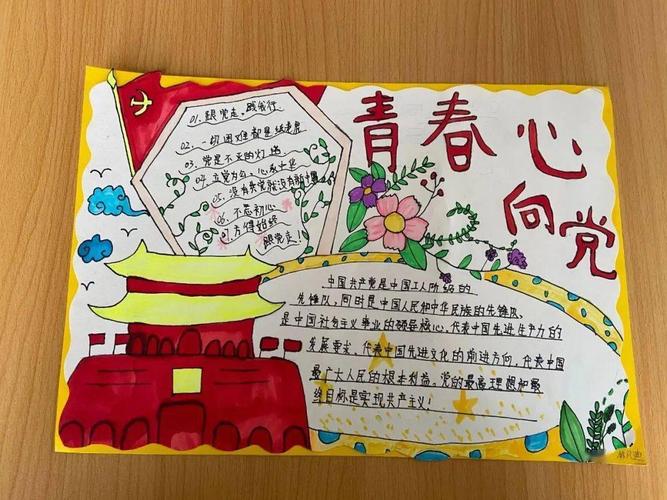 青春心向党
01. 跟党走,践我行
02. 一切困难都是纸老虎
03. 党是不灭的灯塔
04. 立党为公,心系大业
05. 没有共党就没有新中国
06. 不忘初心
07. 方得始终
跟党走!
中国共产党是中国工人阶级的
先锋队,同时是中国人民和中华民族的先锋队,
是中国社会主义事业的领导核心,代表中国先进生产力的
发展要求,代表中国先进文化的前进方向,代表中国
最广大人民的根本利益。党的最高理想和最
终目标是实现共产主义!